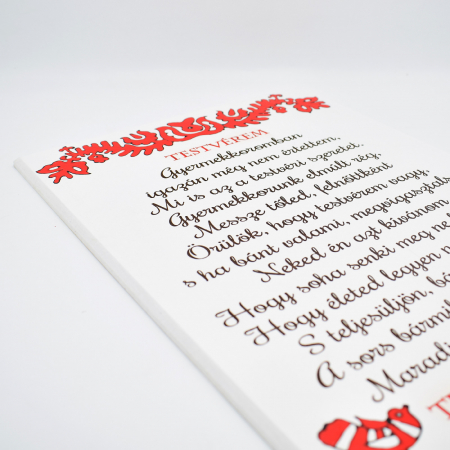 TESTVÉREM
Gyermekkoromban
igazán még nem értettem,
Mi is az a testvéri szeretet,
Gyermekkorunk elmúlt rég,
Messze tőled, felnőttként
Örülök, hogy testvérem vagy,
s ha bánt valami, megvigasztal
Neked én azt kívánom
Hogy soha senki meg ne
Hogy életed legyen
S teljesüljön,
A sors